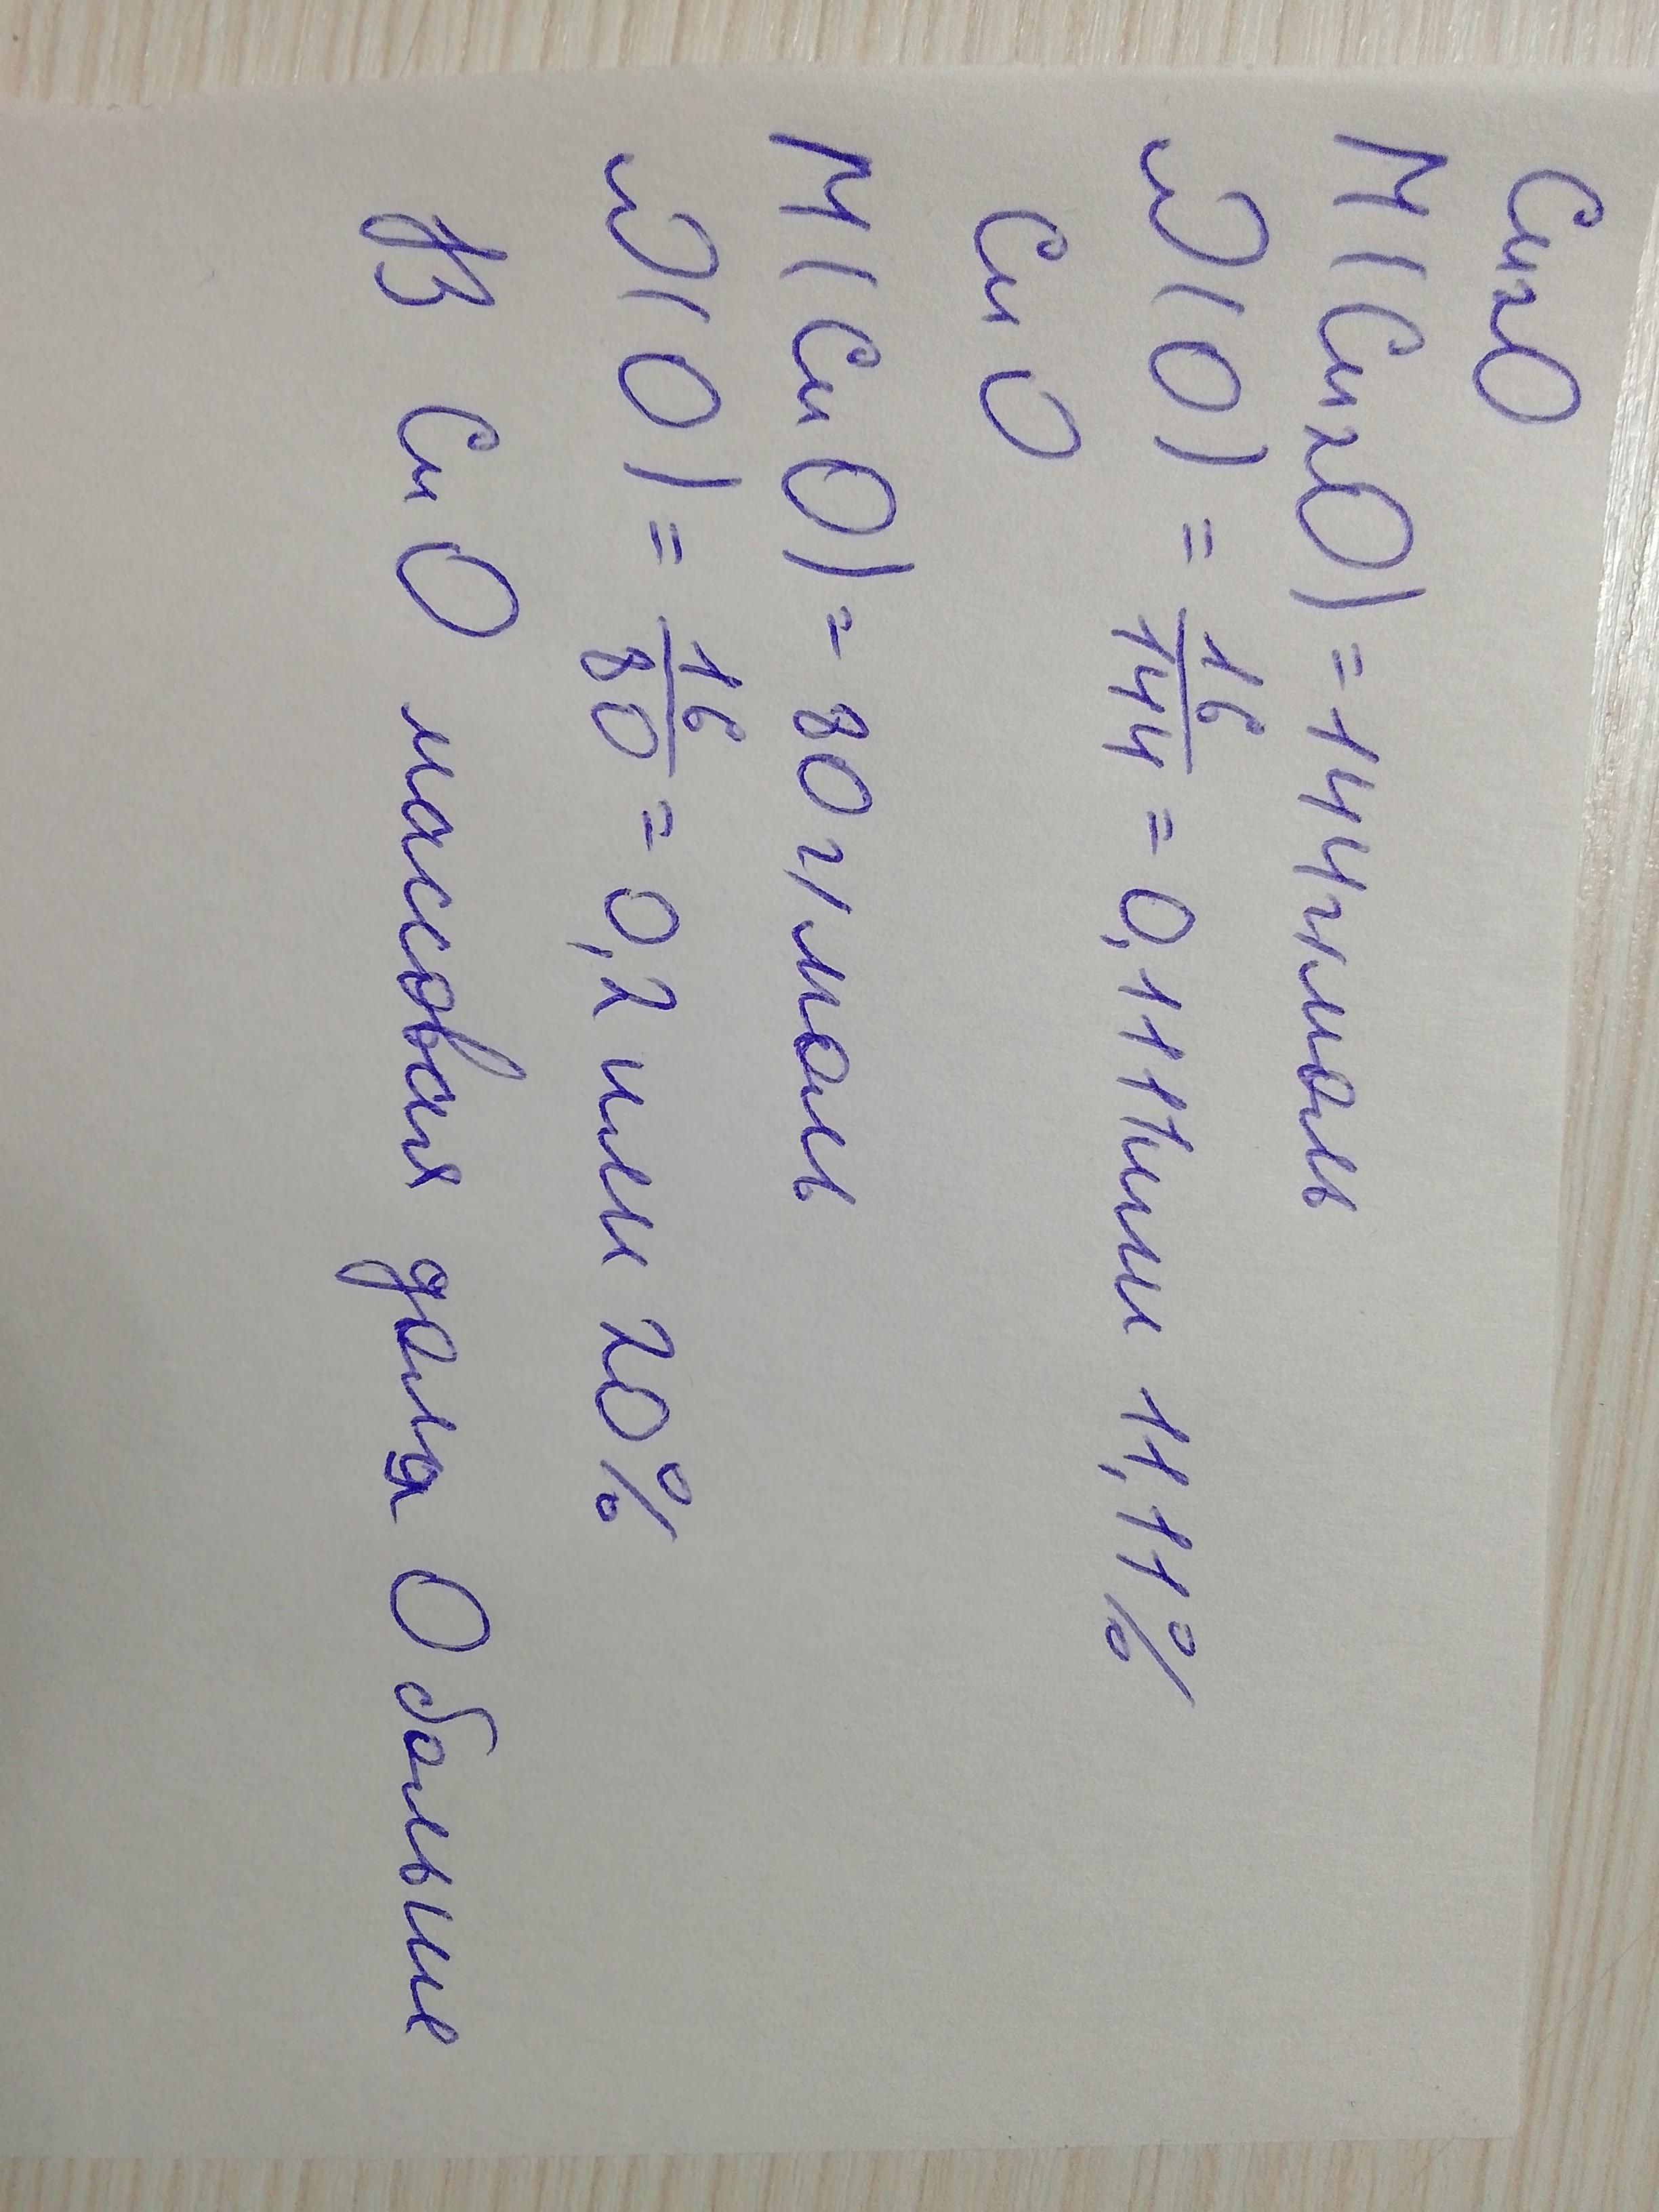 Cu2O
M(Cu2O) = 144г/моль
W(O) = 16/144 = 0,1111 или 11,11%
CuO
M(CuO) = 80 г/моль
W(O) = 16/80 = 0,2 или 20%
В CuO массовая доля O больше